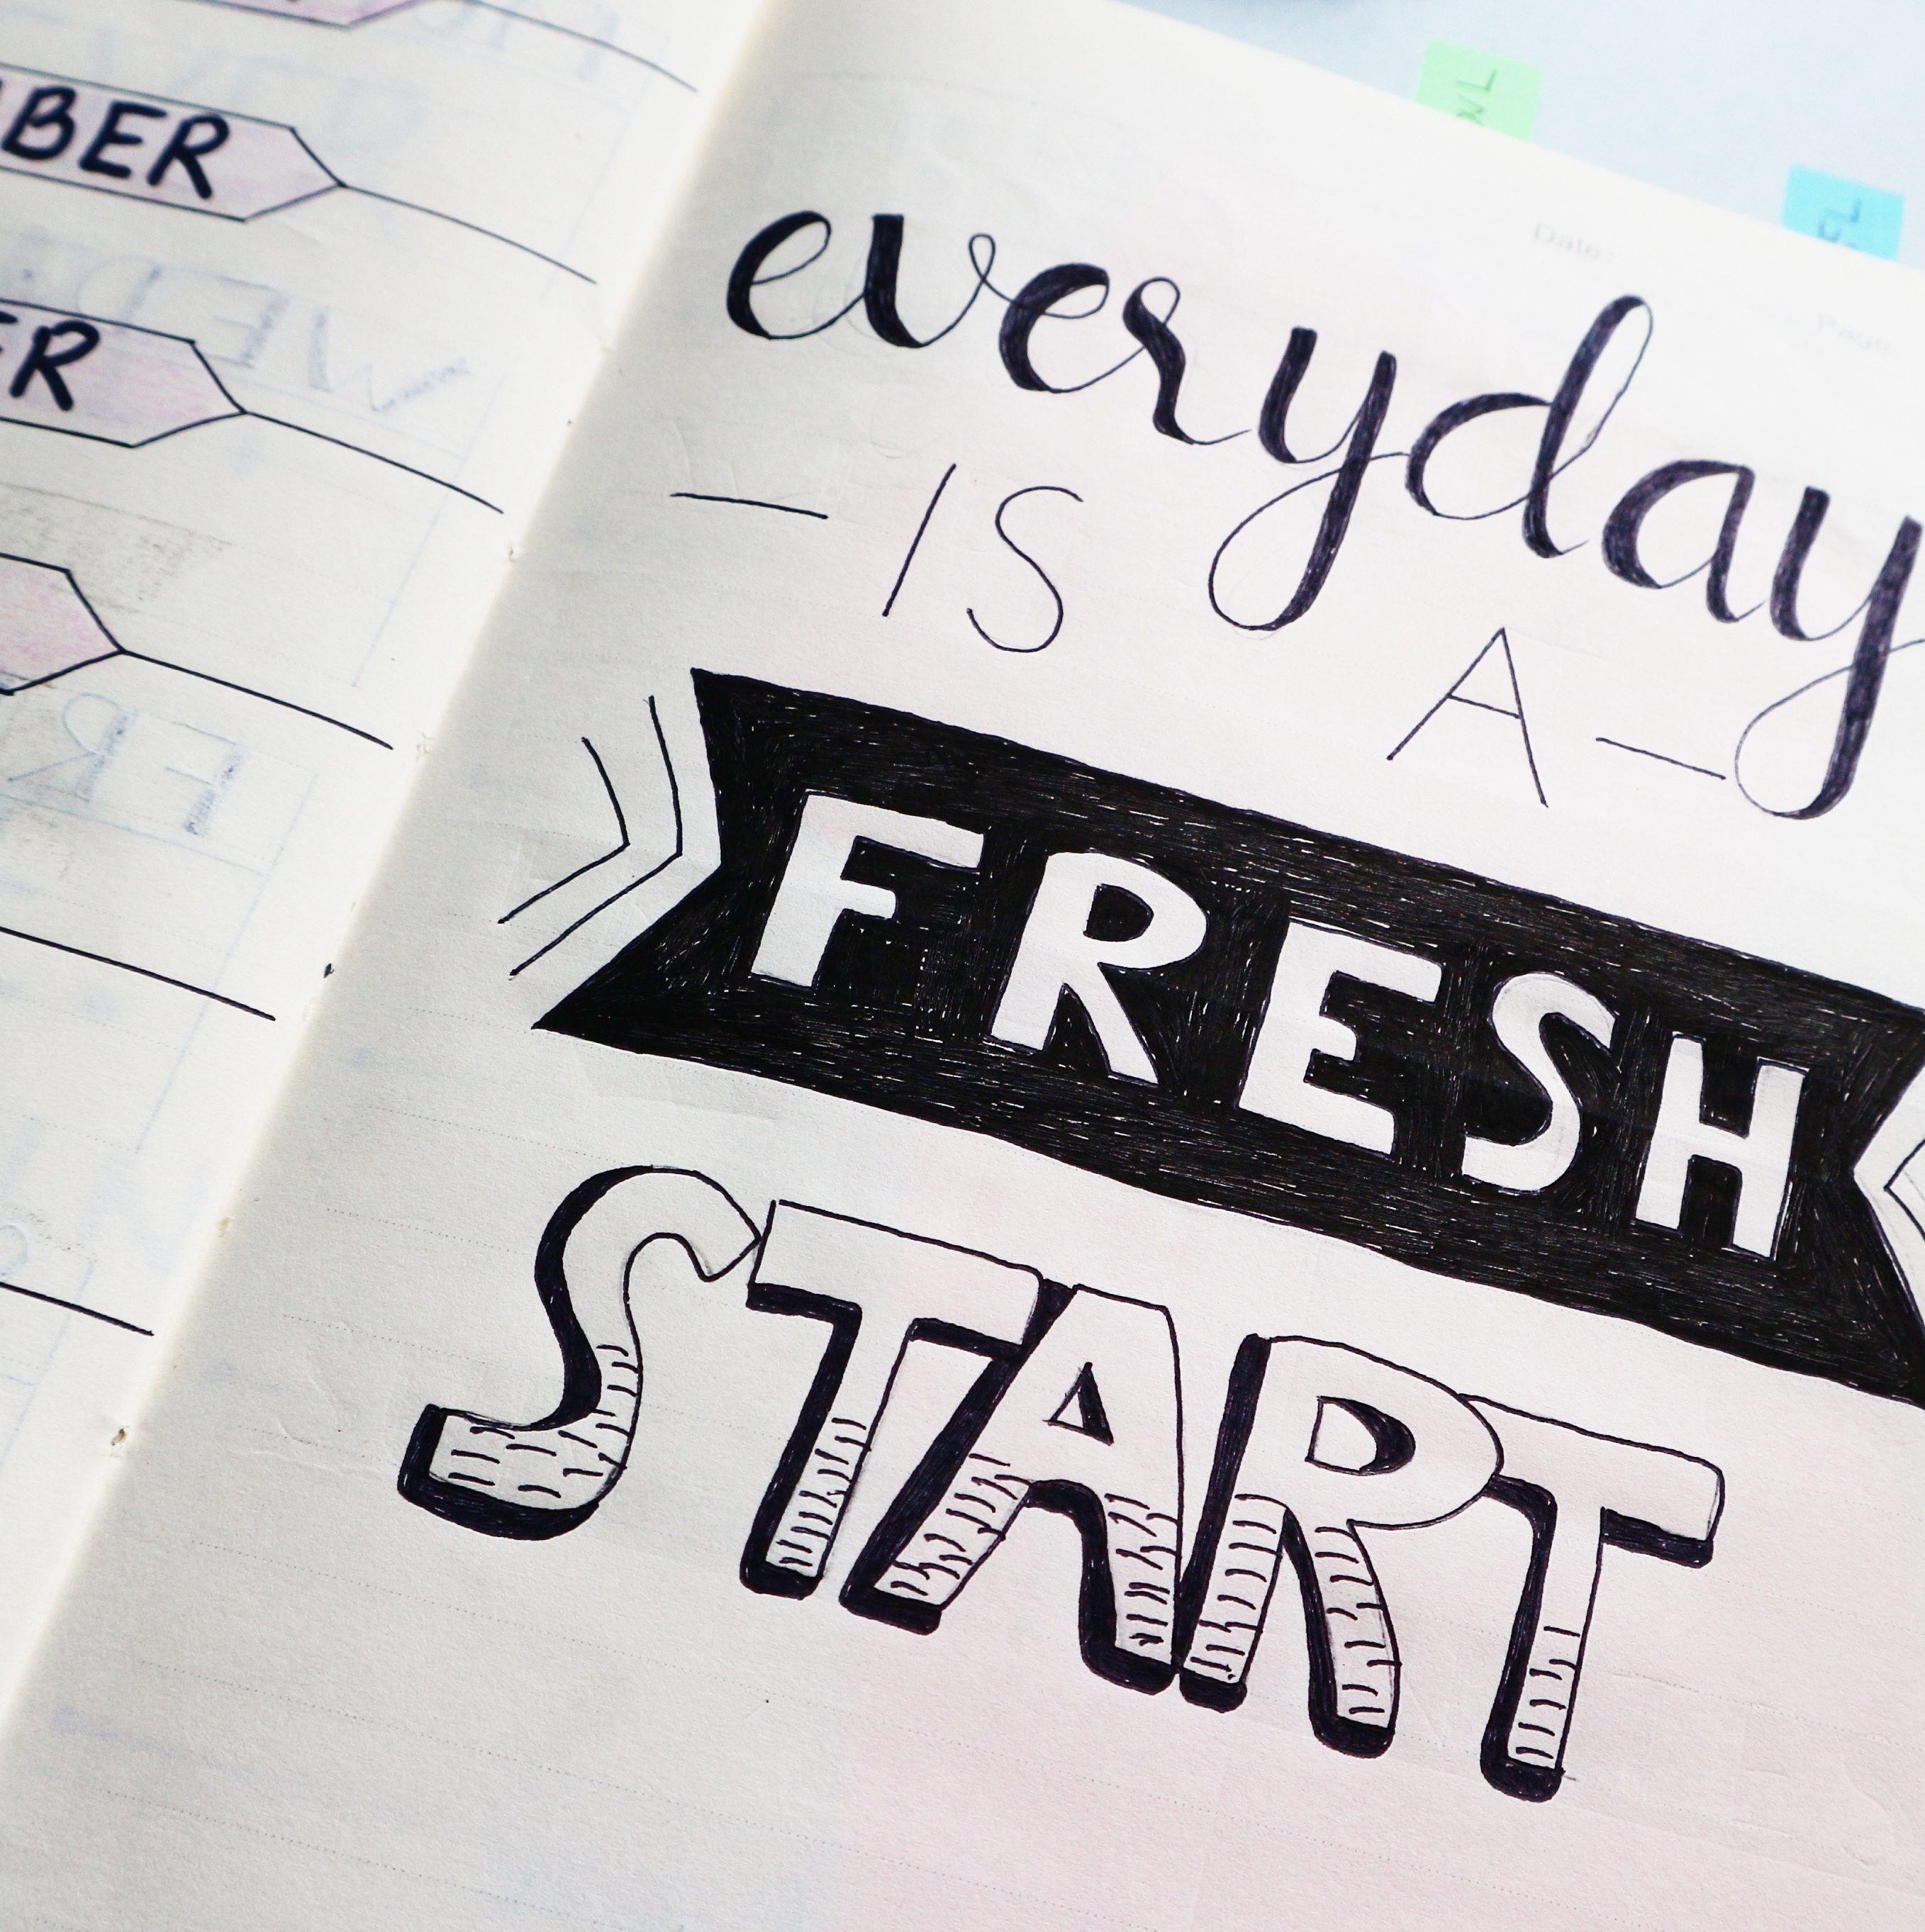 BER
ER
Date
Page
everyday
— IS A —
FRESH
START